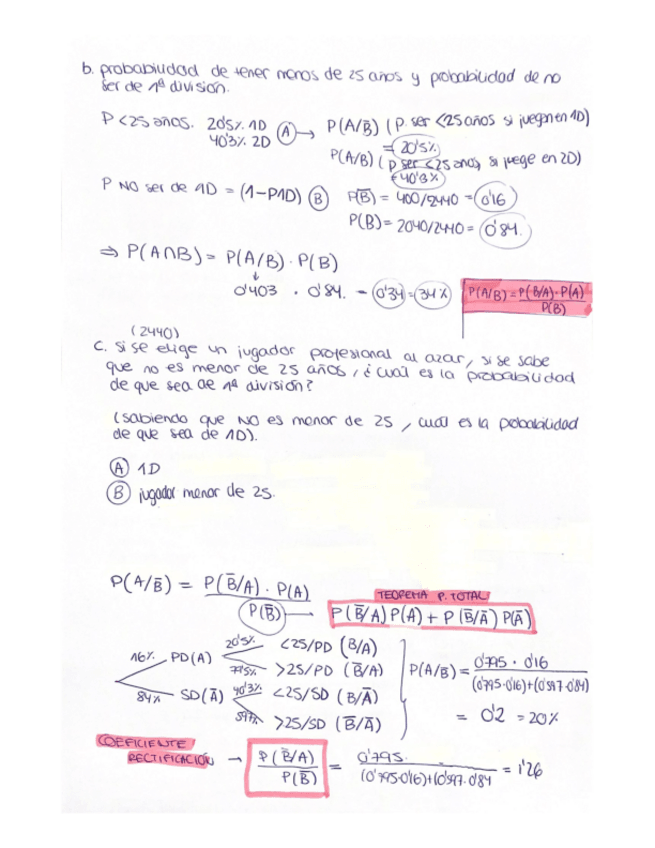 b. probabilidad de tener menos de 25 años y probabilidad de no
ser de 1ª división.
P <25 años. 20'5% 1D (A) → P(A/B̄) (P ser <25 años si juegan en 1D)
40'3% 2D = 20'5%
P(A/B) (P ser <25 años, si juege en 2D)
= 40'3%
P NO ser de 1D = (1-P1D) (B) P(B̄) = 400/2440 = 0'16
P(B) = 2040/2440 = 0'84.
⇒ P(A∩B) = P(A/B) · P(B)
0'403 · 0'84. = 0'34 = 34%
P(A/B) = P(B/A)·P(A) / P(B)
(2440)
c. si se elige un jugador profesional al azar, si se sabe
que no es menor de 25 años, ¿cuál es la probabilidad
de que sea de 1ª división?
(sabiendo que NO es menor de 25, cual es la probabilidad
de que sea de 1D).
(A) 1D
(B) jugador menor de 25.
P(A/B̄) = P(B̄/A) · P(A) / P(B̄)
TEOREMA P. TOTAL
P(B̄/A) P(A) + P(B̄/Ā) P(Ā)
16% PD(A) 20'5% <25/PD (B/A)
79'5% >25/PD (B̄/A)
84% SD(Ā) 40'3% <25/SD (B/Ā)
59'7% >25/SD (B̄/Ā)
P(A/B̄) = 0'795 · 0'16 / (0'795·0'16)+(0'597·0'84)
= 0'2 = 20%
COEFICIENTE
RECTIFICACIÓN → P(B̄/A) / P(B̄) = 0'795. / (0'795·0'16)+(0'597·0'84 = 1'26